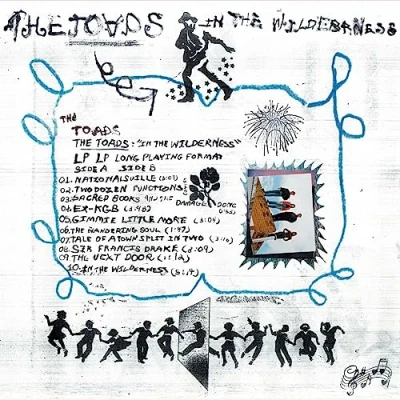 THE TOADS IN THE WILDERNESS
THE
TOADS
THE TOADS: "IN THE WILDERNESS"
LP LP LONG PLAYING FORMAT
SIDE A SIDE B
01. NATIONALSVILLE
02. TWO DOZEN FUNCTIONS
03. SACRED BOOKS AND THE DAMAGE DONE
04. EX-KGB (3:46)
05. GIMMIE LITTLE MORE (3:04)
06. THE WANDERING SOUL (1:47)
07. TALE OF A TOWN SPLIT IN TWO (3:16)
08. SIR FRANCIS DRAKE (3:09)
09. THE NEXT DOOR
10. IN THE WILDERNESS